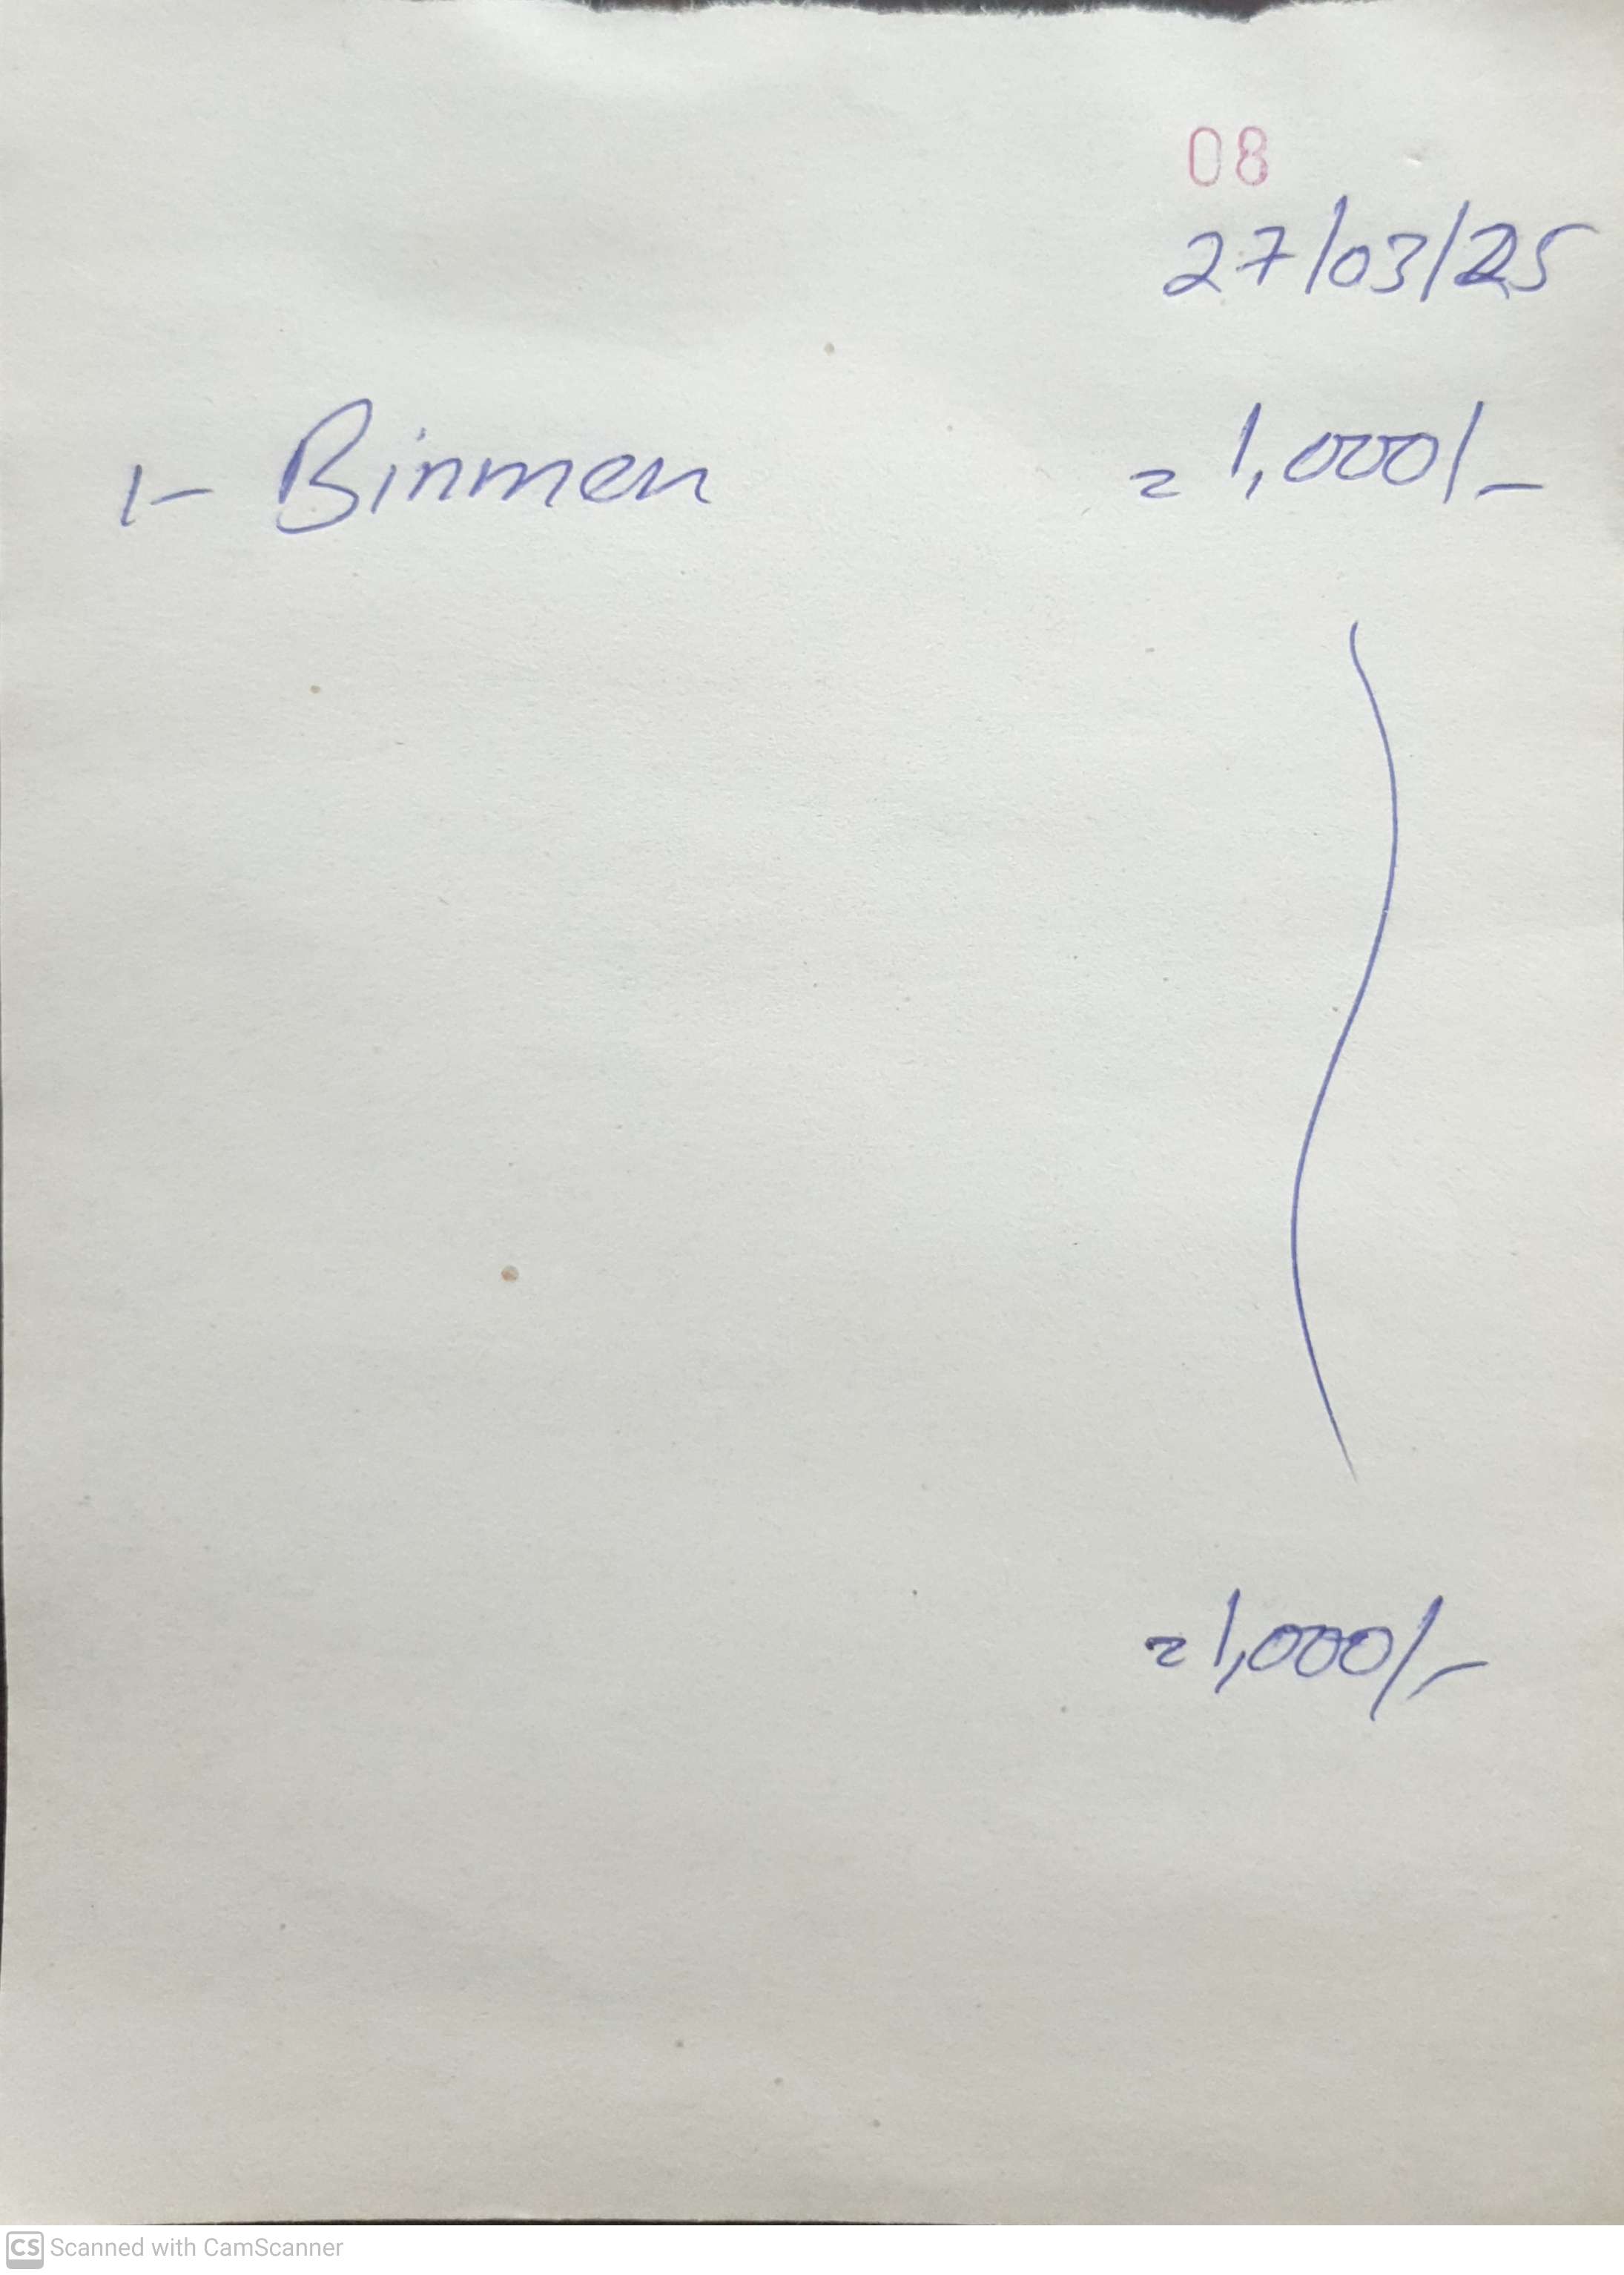 08
27/03/25
1- Binmen = 1,000/-
= 1,000/-
CS Scanned with CamScanner